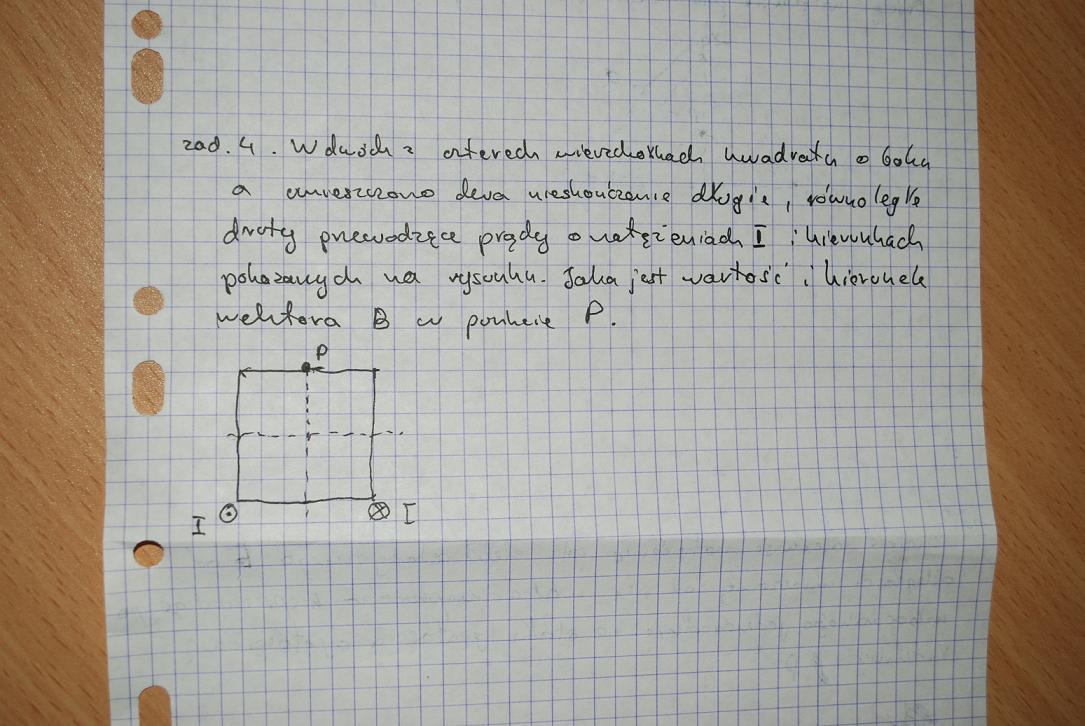 zad. 4. W dwóch z czterech wierzchołkach kwadratu o boku
a umieszczono dwa nieskończenie długie, równoległe
druty przewodzące prądy o natężeniach I i kierunkach
pokazanych na rysunku. Jaka jest wartość i kierunek
wektora B w punkcie P.
P
I I